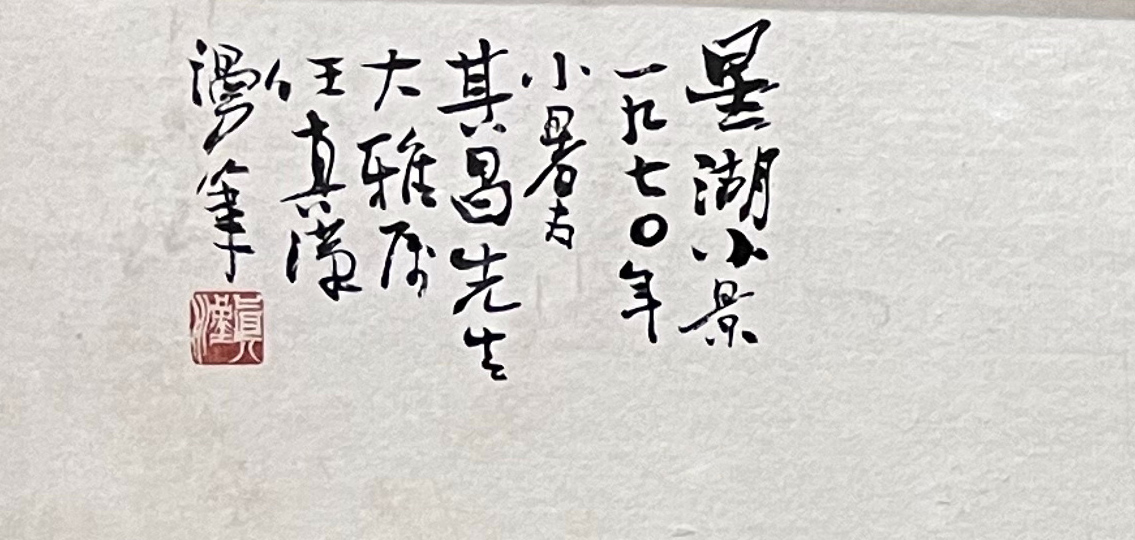 星湖小景
一九七〇年
小暑为
其昌先生
大雅属
任真漢
漫筆
真漢